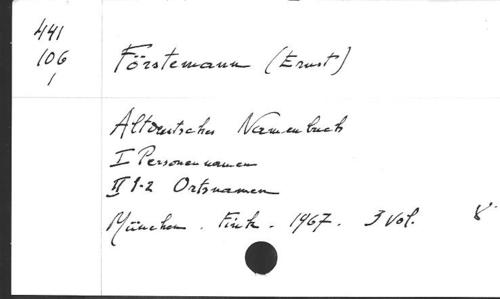 441
106
1
Förstemann (Ernst)
Altdeutsches Namenbuch
I Personennamen
II 1-2 Ortsnamen
München. Fink. 1967. 3 vol. 8°